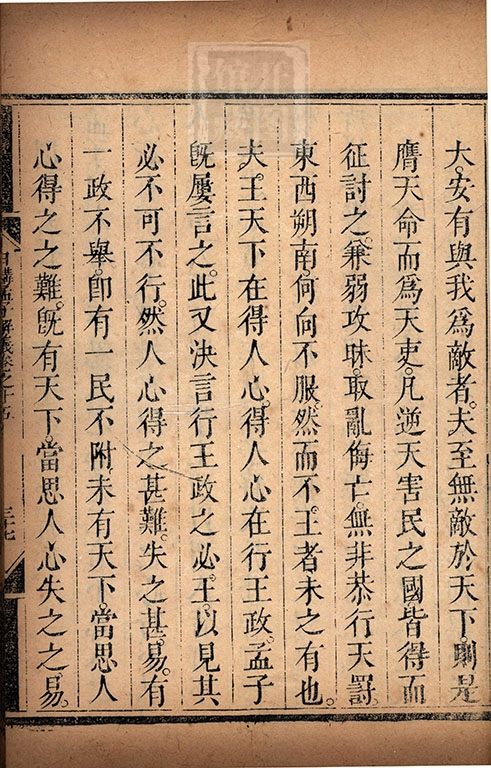 大。安有與我爲敵者。夫至無敵於天下。則是
膺天命而爲天吏。凡逆天害民之國皆得而
征討之。兼弱攻昧。取亂侮亡。無非恭行天罰。
東西朔南。何向不服。然而不王者未之有也。
夫王天下在得人心。得人心在行王政。孟子
旣屢言之。此又決言行王政之必王。以見其
必不可不行。然人心得之甚難。失之甚易。有
一政不舉。卽有一民不附。未有天下。當思人
心得之之難。旣有天下。當思人心失之之易。
日講孟子解義卷之十五
三十七